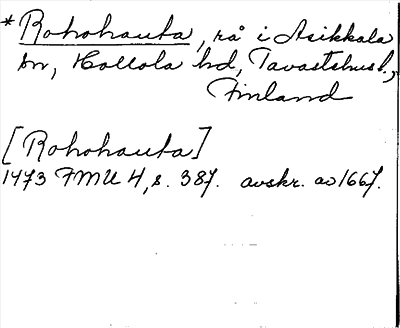 * Rohohauta, rå i Asikkala
sn, Hollola hd, Tavastehus l.,
Finland
[Rohohauta]
1473 FMU 4, s. 387. avskr. av 1667.